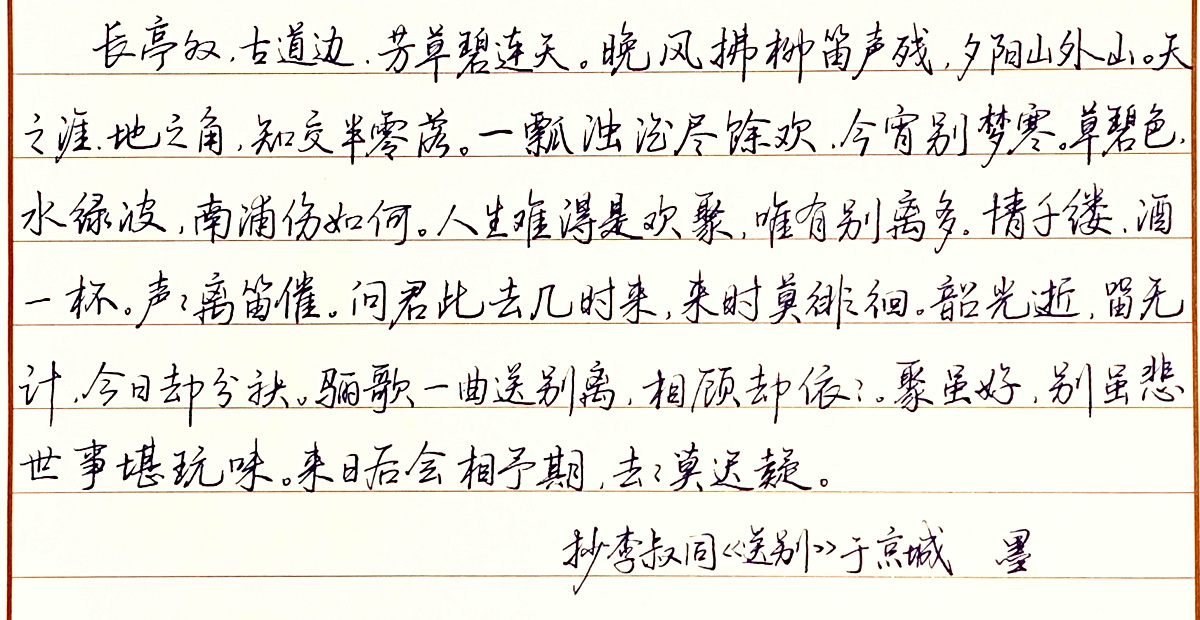 长亭外,古道边,芳草碧连天。晚风拂柳笛声残,夕阳山外山。天
之涯,地之角,知交半零落。一瓢浊酒尽馀欢,今宵别梦寒。草碧色,
水绿波,南浦伤如何。人生难得是欢聚,唯有别离多。情千缕,酒
一杯。声々离笛催。问君此去几时来,来时莫徘徊。韶光逝,留无
计,今日却分袂。骊歌一曲送别离,相顾却依々。聚虽好,别虽悲
世事堪玩味。来日后会相予期,去々莫迟疑。
抄李叔同《送别》于京城 墨